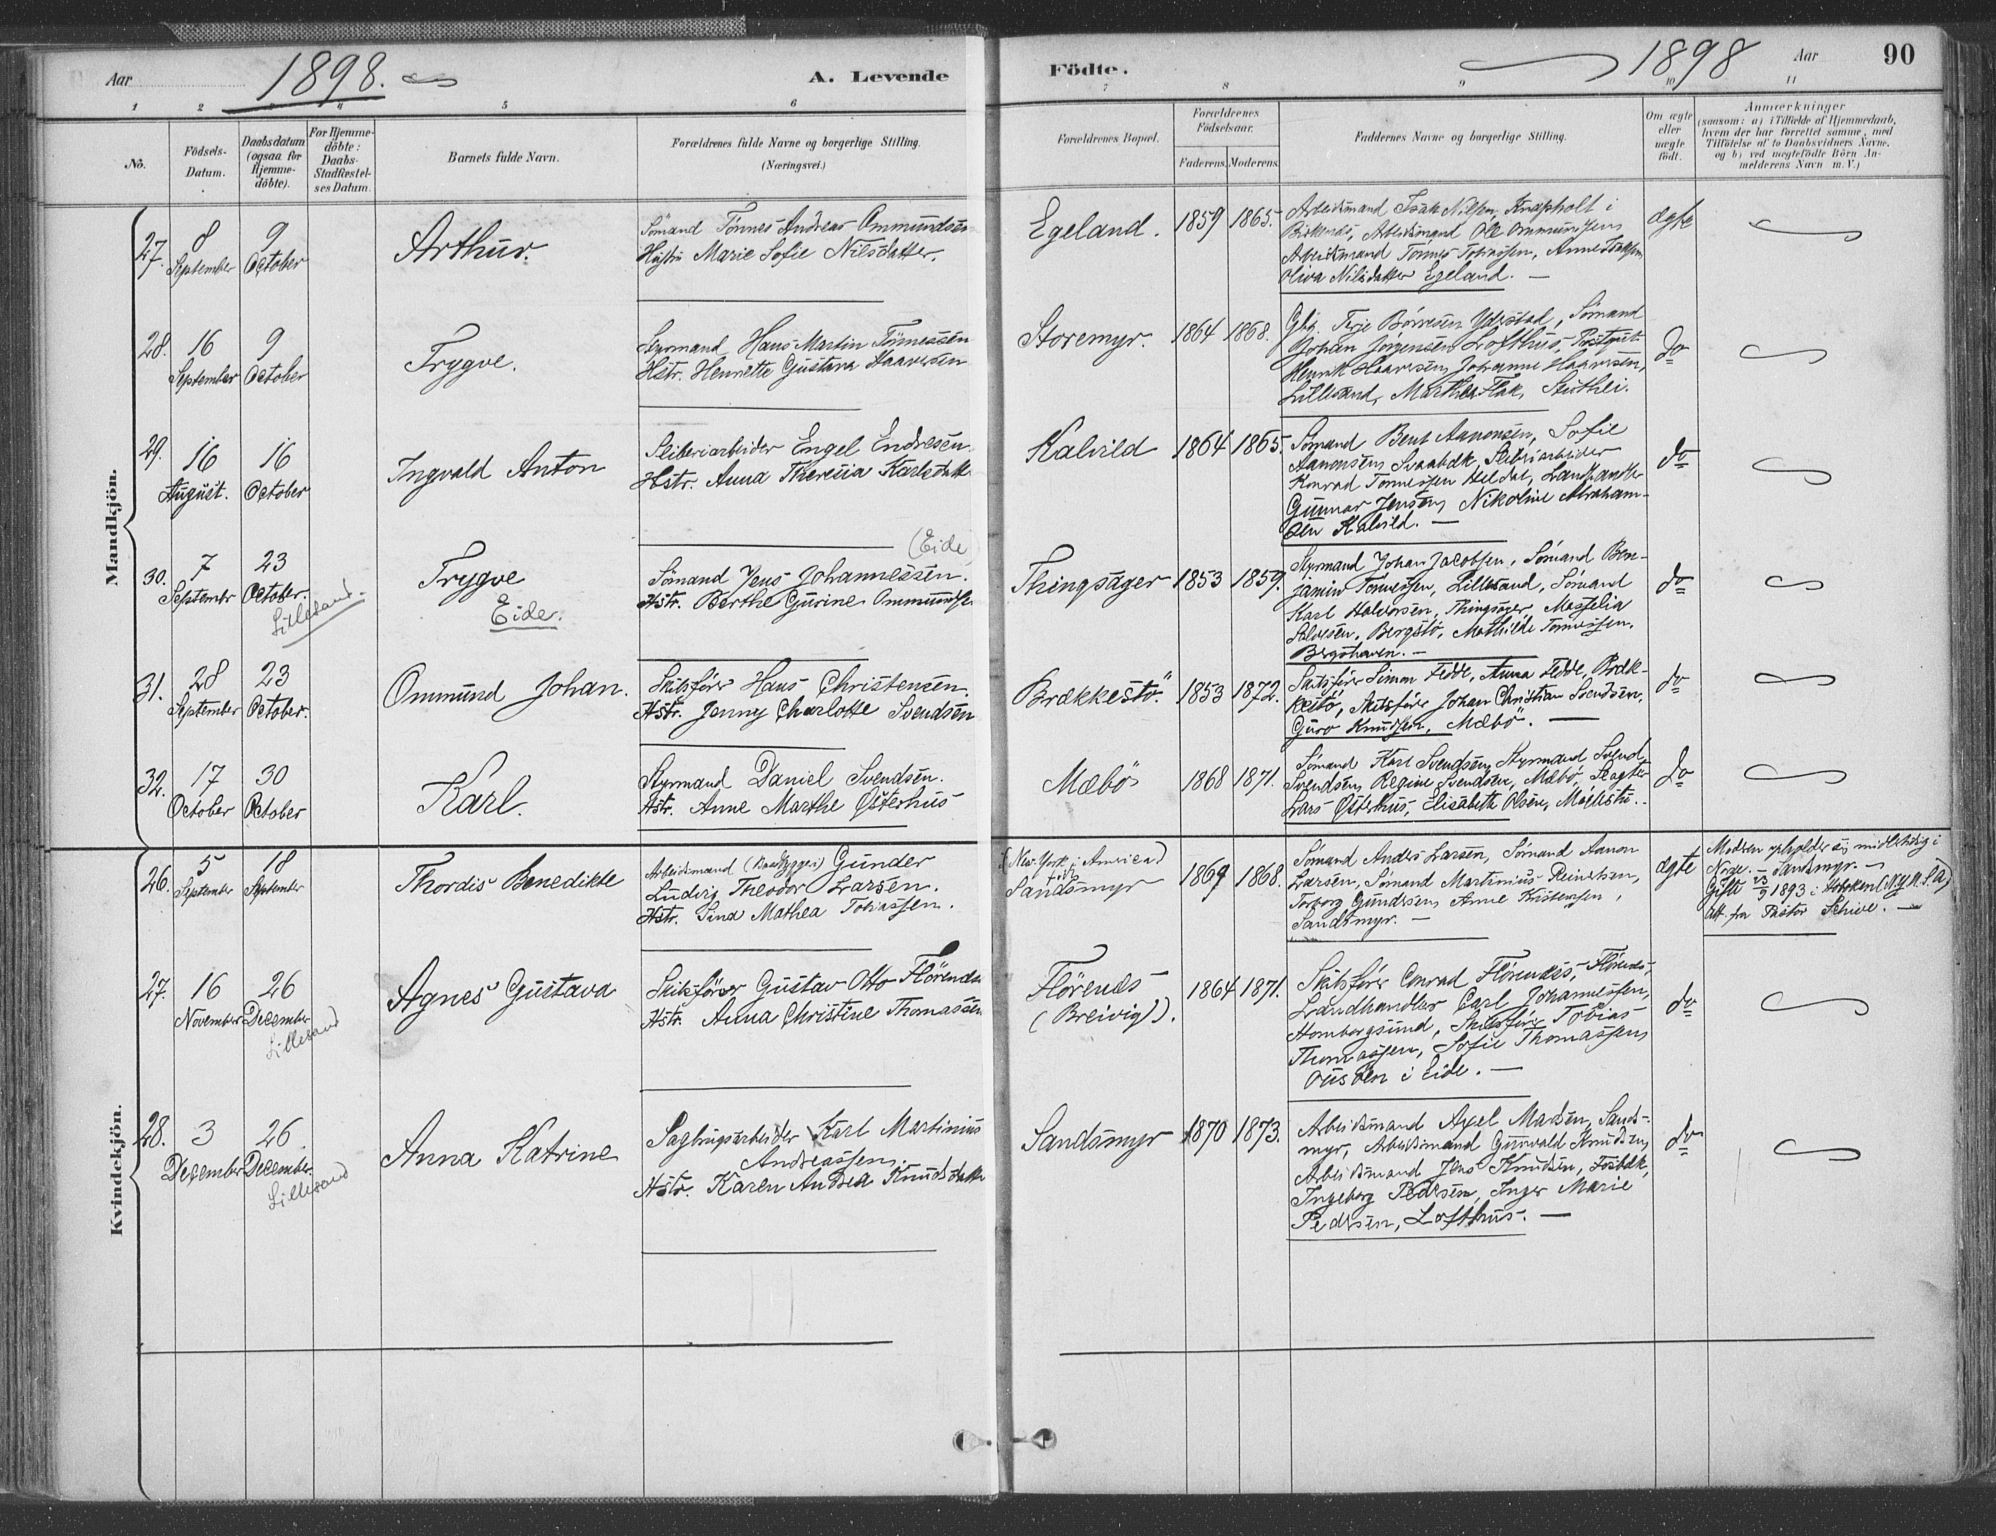 Aar 1898.
A. Levende
Födte.
1898 Aar
90
1 2 3 4 5 6 7 8 9 10 11
No.
Födsels-Datum.
Daabsdatum (ogsaa for Hjemme-döbte).
For Hjemme-döbte: Daabs-Stadfæstel-ses Datum.
Barnets fulde Navn.
Forældrenes fulde Navne og borgerlige Stilling. (Næringsvei.)
Forældrenes Bopæl.
Forældrenes Födselsaar.
Faderens. Moderens.
Faddernes Navne og borgerlige Stilling.
Om ægte eller uægte födt.
Anmærkninger
(saasom: a) i Tilfælde af Hjemmedaab,
hvem der har forrettet samme, med
Tilföielse af to Daabsvidners Navne,
og b) ved uægtefödte Börn An-
melderens Navn m. V.)
Mandkjön.
27.
8 September
9 October
Arthur.
Sömand Tönnes Andreas Ommundsen
Hustru Marie Sofie Nilsdatter.
Egeland.
1859 1865.
Arbeidsmand Isak Nilsen, Knapholt i
Birkenes, Arbeidsmand Ole Ommundsen
Arbeidsmand Tönnes Tobiassen, Anne
Oliva Nilsdatter Egeland. —
ægte
28.
16 September
9 October
Trygve.
Styrmand Hans Martin Tönnessen
Hstr. Henriette Gustava Haavorsen
Storemyr.
1864 1868.
Gbg. Terje Börresen Ydrstad, Sömand
Johan Jörgensen Lofthus,
Henrik Haavorsen, Johanne Haavorsen,
Lillesand, Marthea Flak,
do
29.
16 August.
16 October
Ingvald Anton
Sliberiarbeider Engel Endresen
Hstr. Anna Theresia Karlsdatt
Kalvild
1864 1865.
Sömand Bent Aanonsen, Sofie
Aanonsen Svaabæk Sliberiarbeider
Konrad Tönnessen Heldal, Landhandler
Gunnar Jensen, Nikoline Abraham-
sen Kalvild. —
do
30.
7 Septembr
23 October.
Lillesand.
Trygve
Eide.
(Eide)
Sömand Jens Johannessen.
Hstr. Berthe Gurine Ommundse
Thingsager
1853 1859.
Styrmand Johan Jacobsen, Sömand Ben-
jamin Tönnessen, Lillesand, Sömand
Karl Halvorsen, Thingsager, Masselia
Salvesen, Bergstö, Mathilde Tönnessen,
Bergshaven. —
do
31.
28 September
23 October.
Ommund Johan.
Skibsförer Hans Christensen.
Hstr. Jenny Charlotte Svendsen
Brækkestö.
1853 1872.
Skibsförer Simon Fedde, Anna Fedde, Bræk-
kestö, Skibsförer Johan Christian Svendsen,
Guro Knudsen, Mæbö. —
do
32.
17 October
30 October
Karl.
Styrmand Daniel Svendsen.
Hstr. Anne Marthe Østerhus
Mæbö
1868 1871.
Sömand Karl Svendsen, Styrmand Svend
Svendsen, Regine Svendsen, Mæbö,
Lars Østerhus, Elisabeth Olsen,
do
Kvindekjön.
26.
5 September
18 September
Thordis Benedikte
Arbeidsmand (Baadbyggeri) Gunder
Ludvig Theodor Larsen.
Hstr. Sina Mathea Tobiassen.
(New-York i America)
Sandsmyr
1869 1868.
Sömand Anders Larsen, Sömand Aanon
Larsen, Sömand Martinius Reinertsen,
Torborg Gundersen, Anne Kristensen,
Sandsmyr. —
ægte
Modren opholder sig midlertidig i
Norge. — Sandsmyr. —
Gifte 1893 i Hoboken (N.Y. U.S.A)
att. fra Pastor Schive. —
27.
16 November
26 December
Lillesand
Agnes Gustava
Skibsförer Gustav Otto Flörenæs
Hstr. Anna Christine Thomassen
Flörenæs
(Breivig).
1864 1871.
Skibsförer Conrad Flörenæs, Flörenæs,
Landhandler Carl Johannessen,
Hombergsund, Skibsförer Tobias
Thomassen, Sofie Thomassen,
Ousöen i Eide. —
do
28.
3 Dezember
26 December.
Lillesand
Anna Katrine
Sagbrugsarbeider Karl Martinius
Andreassen.
Hstr. Karen Andrea Knudsdatte
Sandsmyr
1870 1873.
Arbeidsmand Axel Madsen, Sands-
myr, Arbeidsmand Gunvald Knudsen,
Arbeidsmand Jens Knudsen, Fosbæk,
Ingeborg Pedersen, Inger Marie
Pedersen, Lofthus. —
do